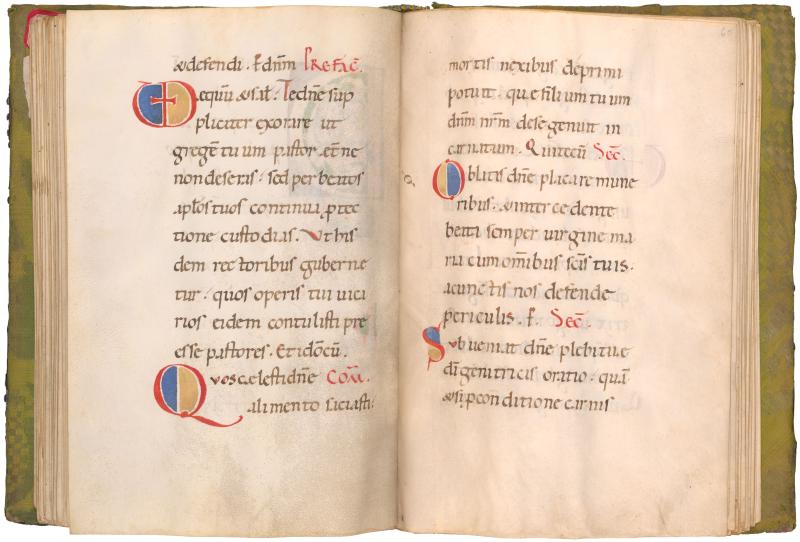 & defendi. P dnm Prefac.
equū & sal. Te dne sup
pliciter exorare ut
gregē tuum pastor .ęt̄ne
non deseras. sed per beatos
aplos tuos continua p tec
tione custodias. Vt his
dem rectoribus guberne
tur. quos operis tui vica
rios eidem contulisti pre
esse pastores. Et idōcū.
Quos cælesti dne Com̄.
alimento saciasti.
mortis nexibus deprimi
potuit. que filium tuum
dnm nrm de se genuit in
carnatum. Qui tecū Sec̄.
Oblatis dne placare mune
ribus. & intercedente
beata semper virgine ma
ria cum omībus scīs tuis.
a cunctis nos defende
periculis. P. Sec̄.
Subveniat dne plebi tuæ
dī genitricis oratio. quā
& si p conditione carnis